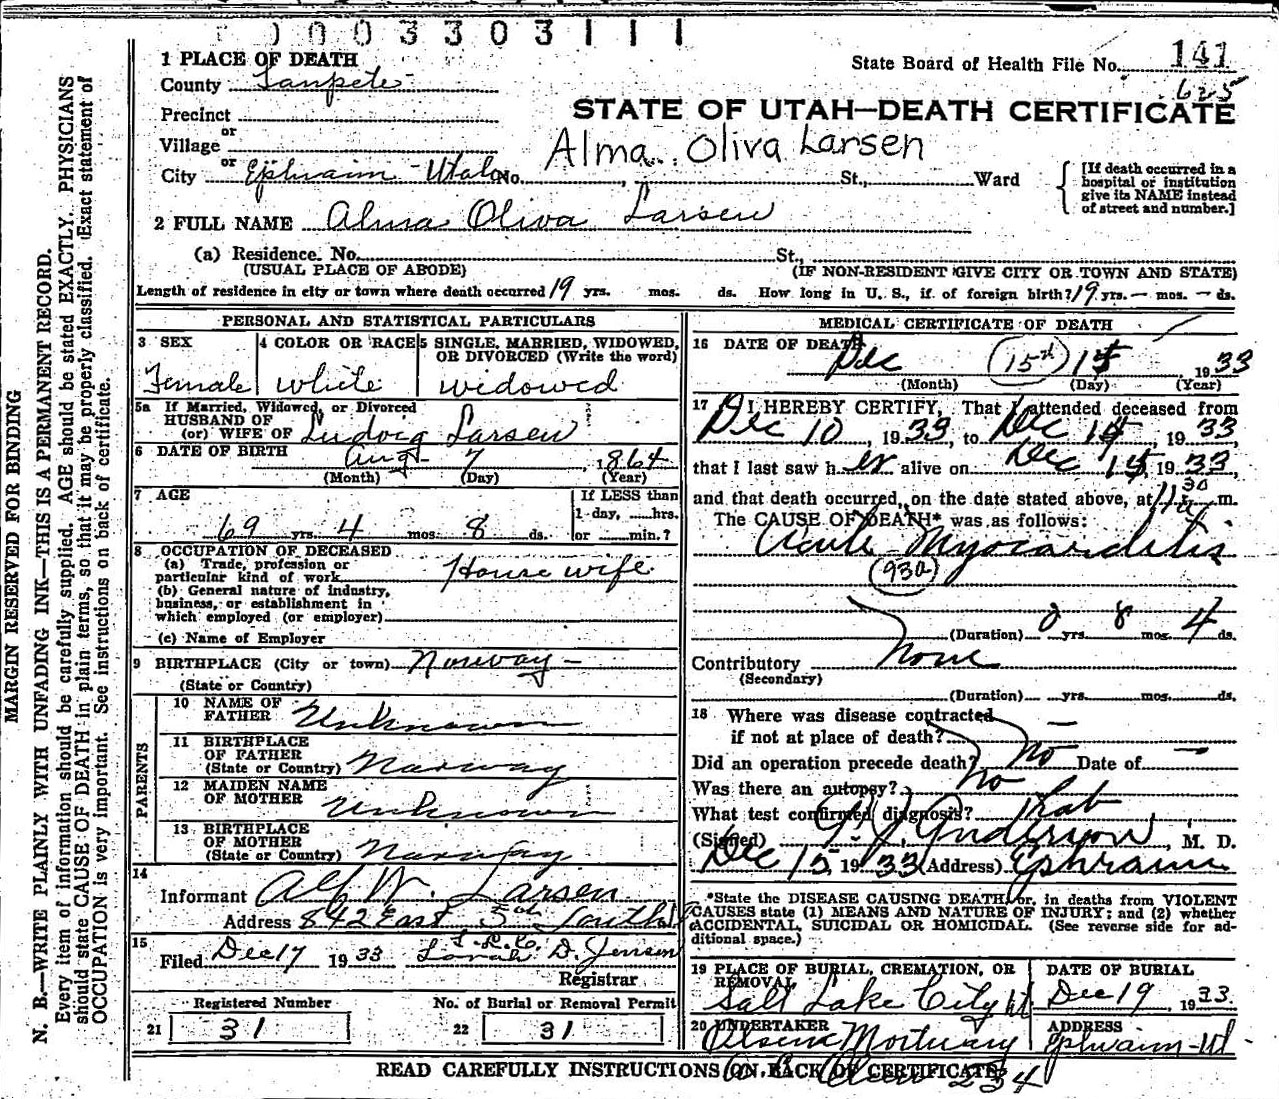 0003303111
1 PLACE OF DEATH
State Board of Health File No. 141
625
County Sanpete
STATE OF UTAH—DEATH CERTIFICATE
Precinct
or
Village
Alma Oliva Larsen
or
City Ephraim Utah No. , St., Ward
[If death occurred in a hospital or institution give its NAME instead of street and number.]
2 FULL NAME Alma Oliva Larsen
(a) Residence. No. St.,
(USUAL PLACE OF ABODE) (IF NON-RESIDENT GIVE CITY OR TOWN AND STATE)
Length of residence in city or town where death occurred 19 yrs. mos. ds. How long in U. S., if of foreign birth? 19 yrs. — mos. — ds.
PERSONAL AND STATISTICAL PARTICULARS
3 SEX
Female
4 COLOR OR RACE
White
5 SINGLE, MARRIED, WIDOWED, OR DIVORCED (Write the word)
widowed
5a If Married, Widowed, or Divorced
HUSBAND OF
(or) WIFE OF Ludvig Larsen
6 DATE OF BIRTH Aug- 7, 1864
(Month) (Day) (Year)
7 AGE
69 yrs. 4 mos. 8 ds.
If LESS than
1 day, hrs.
or min.?
8 OCCUPATION OF DECEASED
(a) Trade, profession or
particular kind of work House wife
(b) General nature of industry,
business, or establishment in
which employed (or employer)
(c) Name of Employer
9 BIRTHPLACE (City or town) Norway -
(State or Country)
PARENTS
10 NAME OF
FATHER Unknown
11 BIRTHPLACE
OF FATHER
(State or Country) Norway
12 MAIDEN NAME
OF MOTHER Unknown
13 BIRTHPLACE
OF MOTHER
(State or Country) Norway
14
Informant Alf W. Larsen
Address 842 East 5th South
15
Filed Dec 17 1933 D. Jensen
Registrar
Registered Number
21 31
No. of Burial or Removal Permit
22 31
MEDICAL CERTIFICATE OF DEATH
16 DATE OF DEATH
Dec 15th 15 1933
(Month) (Day) (Year)
17 I HEREBY CERTIFY, That I attended deceased from
Dec 10, 1933, to Dec 15, 1933
that I last saw her alive on Dec 15, 1933,
and that death occurred, on the date stated above, at 11 30 a m.
The CAUSE OF DEATH* was as follows:
Acute Myocarditis
(93a)
(Duration) 0 yrs. 8 mos. 4 ds.
Contributory None
(Secondary)
(Duration) yrs. mos. ds.
18 Where was disease contracted
if not at place of death? —
Did an operation precede death? No Date of —
Was there an autopsy? No
What test confirmed diagnosis?
(Signed) Anderson, M. D.
Dec 15, 1933 (Address) Ephraim
*State the DISEASE CAUSING DEATH, or, in deaths from VIOLENT
CAUSES state (1) MEANS AND NATURE OF INJURY; and (2) whether
ACCIDENTAL, SUICIDAL OR HOMICIDAL. (See reverse side for ad-
ditional space.)
19 PLACE OF BURIAL, CREMATION, OR
REMOVAL
Salt Lake City Ut
DATE OF BURIAL
Dec 19, 1933.
20 UNDERTAKER
Olsen Mortuary
ADDRESS
Ephraim - Ut
READ CAREFULLY INSTRUCTIONS ON BACK OF CERTIFICATE
234
MARGIN RESERVED FOR BINDING
N. B.—WRITE PLAINLY WITH UNFADING INK—THIS IS A PERMANENT RECORD.
Every item of information should be carefully supplied. AGE should be stated EXACTLY. PHYSICIANS
should state CAUSE OF DEATH in plain terms, so that it may be properly classified. Exact statement of
OCCUPATION is very important. See instructions on back of certificate.